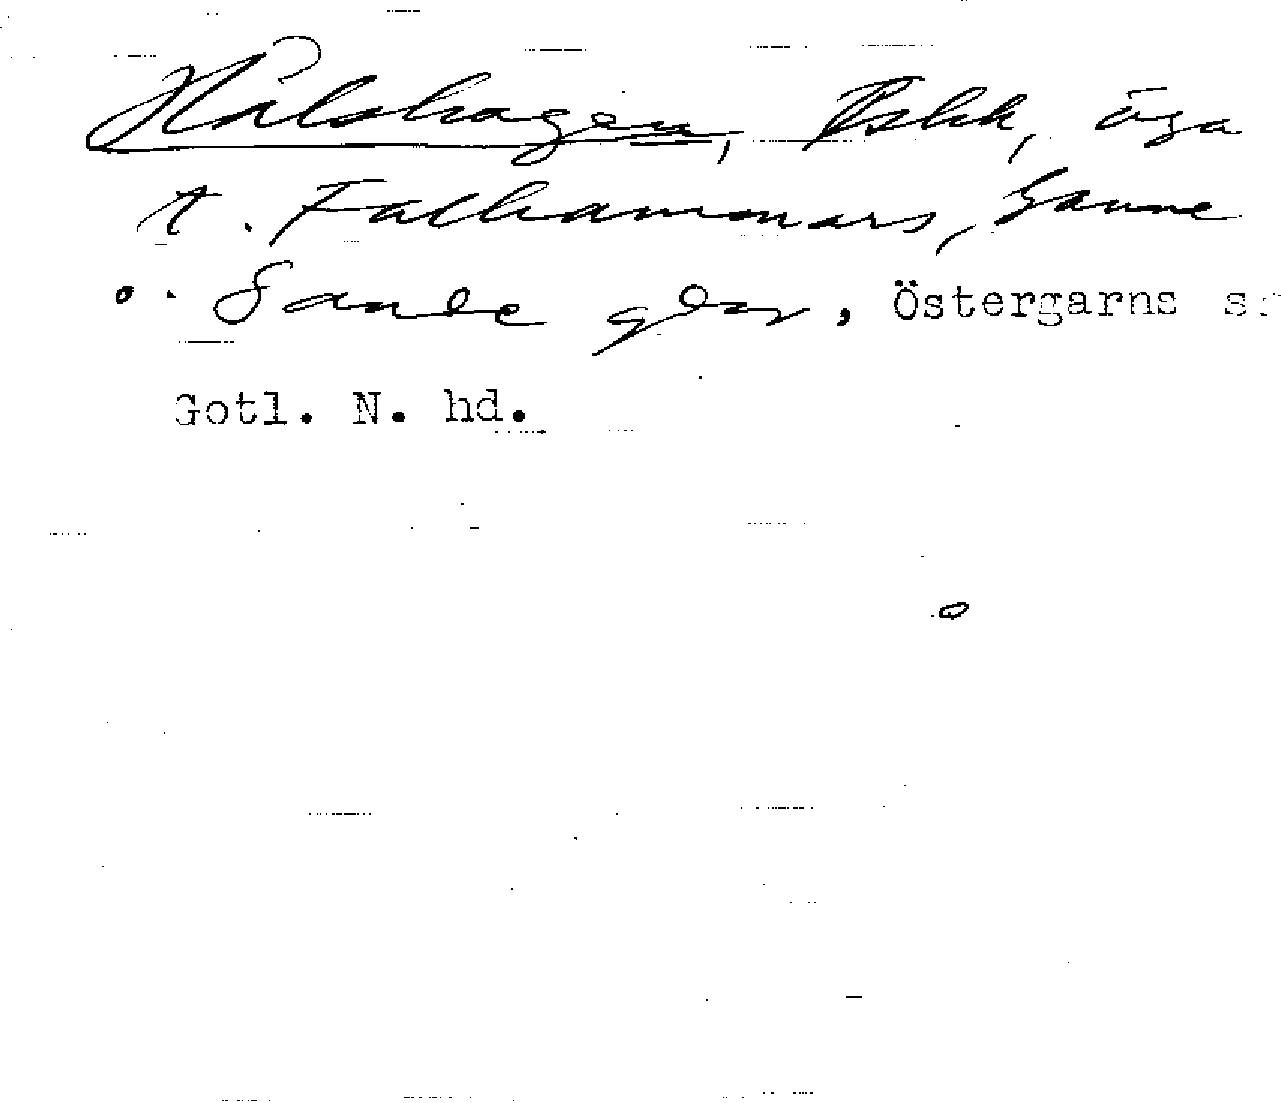 Hålshagen, Bskk, äga
t. Falhammars, Ganne
o. Sande gdar, Östergarns s
Gotl. N. hd.